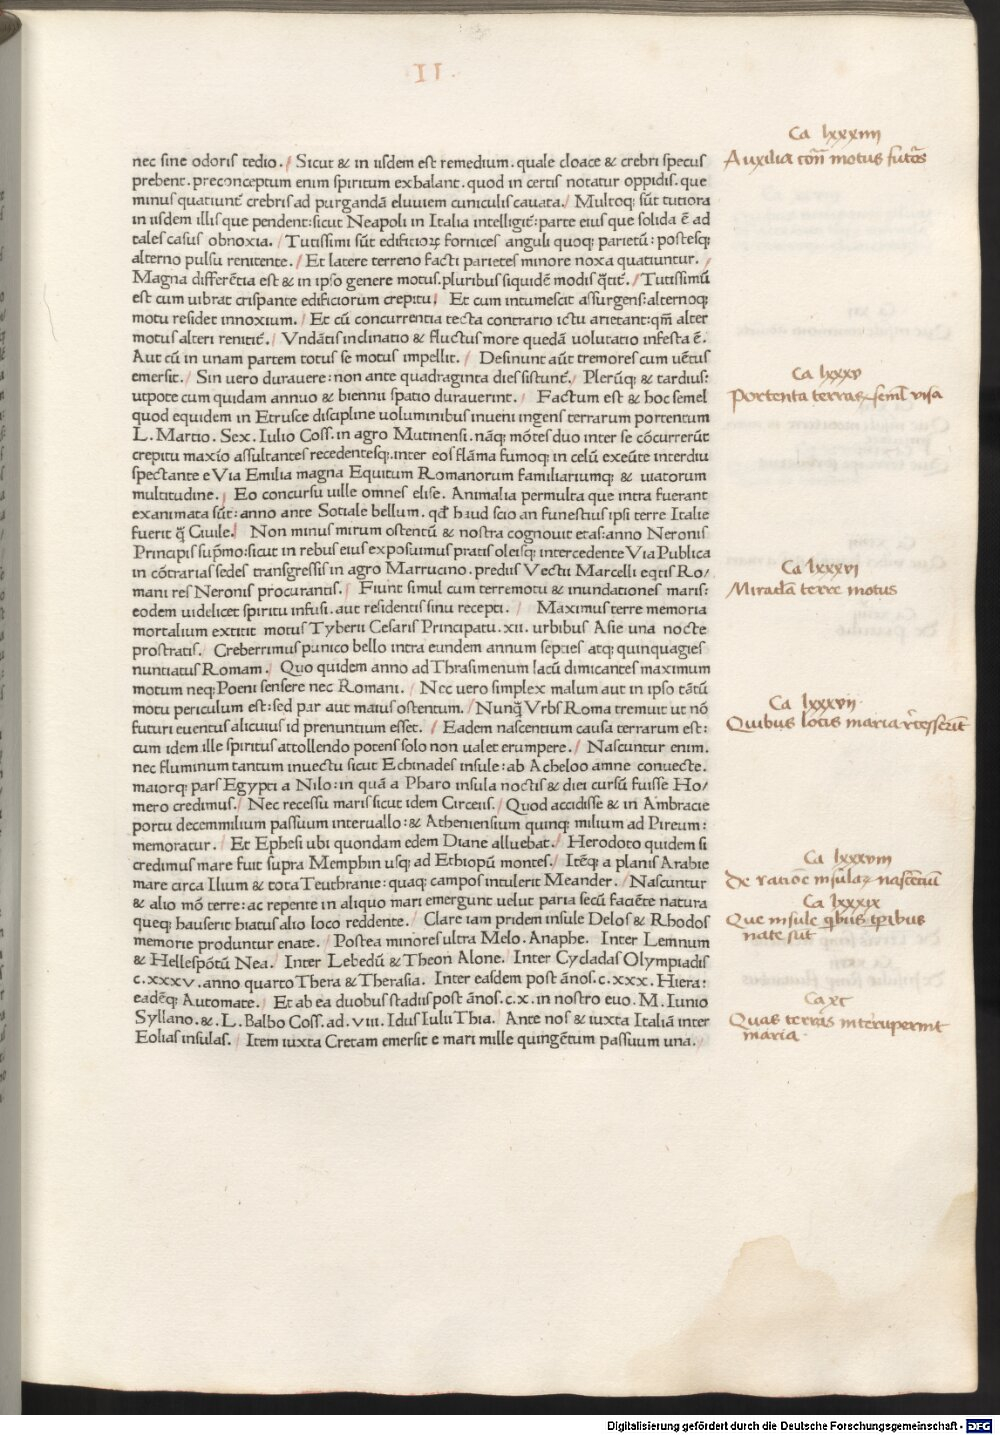 II.
nec sine odoris tedio. / Sicut & in iisdem est remedium. quale cloace & crebri specus
prebent. preconceptum enim spiritum exhalant. quod in certis notatur oppidis. que
minus quatiunt᷑ crebris ad purgandã eluuiem cuniculis cauata. / Multoq; sũt tutiora
in iisdem illis que pendent: sicut Neapoli in Italia intelligit᷑: parte eius que solida ẽ ad
tales casus obnoxia. / Tutissimi sũt edificioꝝ fornices anguli quoq; parietũ: postesq;
alterno pulsu renitente. / Et latere terreno facti parietes minore noxa quatiuntur. /
Magna differẽtia est & in ipso genere motus. pluribus siquidẽ modis q̃tit᷑. / Tutissimũ
est cum uibrat crispante edificiorum crepitu / Et cum intumescit assurgens: alternoq;
motu residet innoxium. / Et cũ concurrentia tecta contrario ictu arietant: qm̃ alter
motus alteri renitit᷑. / Vndãtis inclinatio & fluctus more quedã uolutatio infesta ẽ.
Aut cũ in unam partem totus se motus impellit. / Desinunt aũt tremores cum uẽtus
emersit. / Sin uero durauere: non ante quadraginta dies sistunt᷑. / Plerũq; & tardius:
utpote cum quidam annuo & biennii spatio durauerint. / Factum est & hoc semel
quod equidem in Etrusce discipline uoluminibus inueni ingens terrarum portentum
L. Martio. Sex. Iulio Coss. in agro Mutinensi. nãq; mõtes duo inter se cõcurrerũt
crepitu maxĩo assultantes recedentesq;. inter eos flãma fumoq; in celũ exeũte interdiu
spectante e Via Emilia magna Equitum Romanorum Familiariumq; & uiatorum
multitudine. / Eo concursu uille omnes elise. Animalia permulta que intra fuerant
exanimata sũt: anno ante Sotiale bellum. qd̃ haud scio an funestius ipsi terre Italie
fuerit q̃ Ciuile. / Non minus mirum ostentũ & nostra cognouit etas: anno Neronis
Principis sup̃mo: sicut in rebus eius exposuimus pratis oleisq; intercedente Via Publica
in cõtrarias sedes transgressis in agro Marrucino. prediis Vectii Marcelli eq̃tis Ro/
mani res Neronis procurantis. / Fiunt simul cum terremotu & inundationes maris:
eodem uidelicet spiritu infusi. aut residentis sinu recepti. / Maximus terre memoria
mortalium extitit motus Tyberii Cesaris Principatu. xii. urbibus Asie una nocte
prostratis. / Creberrimus punico bello intra eundem annum septies atq; quinquagies
nuntiatus Romam. / Quo quidem anno ad Thrasimenum lacũ dimicantes maximum
motum neq; Poeni sensere nec Romani. / Nec uero simplex malum aut in ipso tãtũ
motu periculum est: sed par aut maius ostentum. / Nunq̃ Vrbs Roma tremuit ut nõ
futuri euentus alicuius id prenuntium esset. / Eadem nascentium causa terrarum est:
cum idem ille spiritus attollendo potens solo non ualet erumpere. / Nascuntur enim.
nec fluminum tantum inuectu sicut Echinades insule: ab Acheloo amne conuecte.
maiorq; pars Egypti a Nilo: in quã a Pharo insula noctis & diei cursũ fuisse Ho/
mero credimus. / Nec recessu maris sicut idem Circeiis. / Quod accidisse & in Ambracie
portu decemmilium passuum interuallo: & Atheniensium quinq; milium ad Pireum:
memoratur. / Et Ephesi ubi quondam edem Diane alluebat. / Herodoto quidem si
credimus mare fuit supra Memphin usq; ad Ethiopũ montes. / Itẽq; a planis Arabie
mare circa Ilium & tota Teuthranie: quaq; campos intulerit Meander. / Nascuntur
& alio mõ terre: ac repente in aliquo mari emergunt uelut paria secũ faciẽte natura
queq; hauserit hiatus alio loco reddente. / Clare iam pridem insule Delos & Rhodos
memorie produntur enate. / Postea minores ultra Melo. Anaphe. Inter Lemnum
& Hellespõtũ Nea. / Inter Lebedũ & Theon Alone. / Inter Cycladas Olympiadis
c.xxxv. anno quarto Thera & Therasia. Inter easdem post ãnos. c.xxx. Hiera:
eadẽq; Automate. / Et ab ea duobus stadiis post ãnos. c.x. in nostro euo. M. Iunio
Syllano. &. L. Balbo Coss. ad. viii. Idus Iulii Thia. / Ante nos & iuxta Italiã inter
Eolias insulas. / Item iuxta Cretam emersit e mari mille quingẽtum passuum una. /
Ca lxxxiiii
Auxilia cõñ motus futũs
Ca lxxxv
Portenta terraꝝ semĺ visa
Ca lxxxvi
Mirada terre motus
Ca lxxxvii
Quibus locis maria
Ca lxxxviii
De ratiõe insulaꝝ nascẽtiũ
Ca lxxxix
Que insule qbus tpibus
nate sũt
Ca xc
Quas terras interuperint
maria
Digitalisierung gefördert durch die Deutsche Forschungsgemeinschaft - DFG